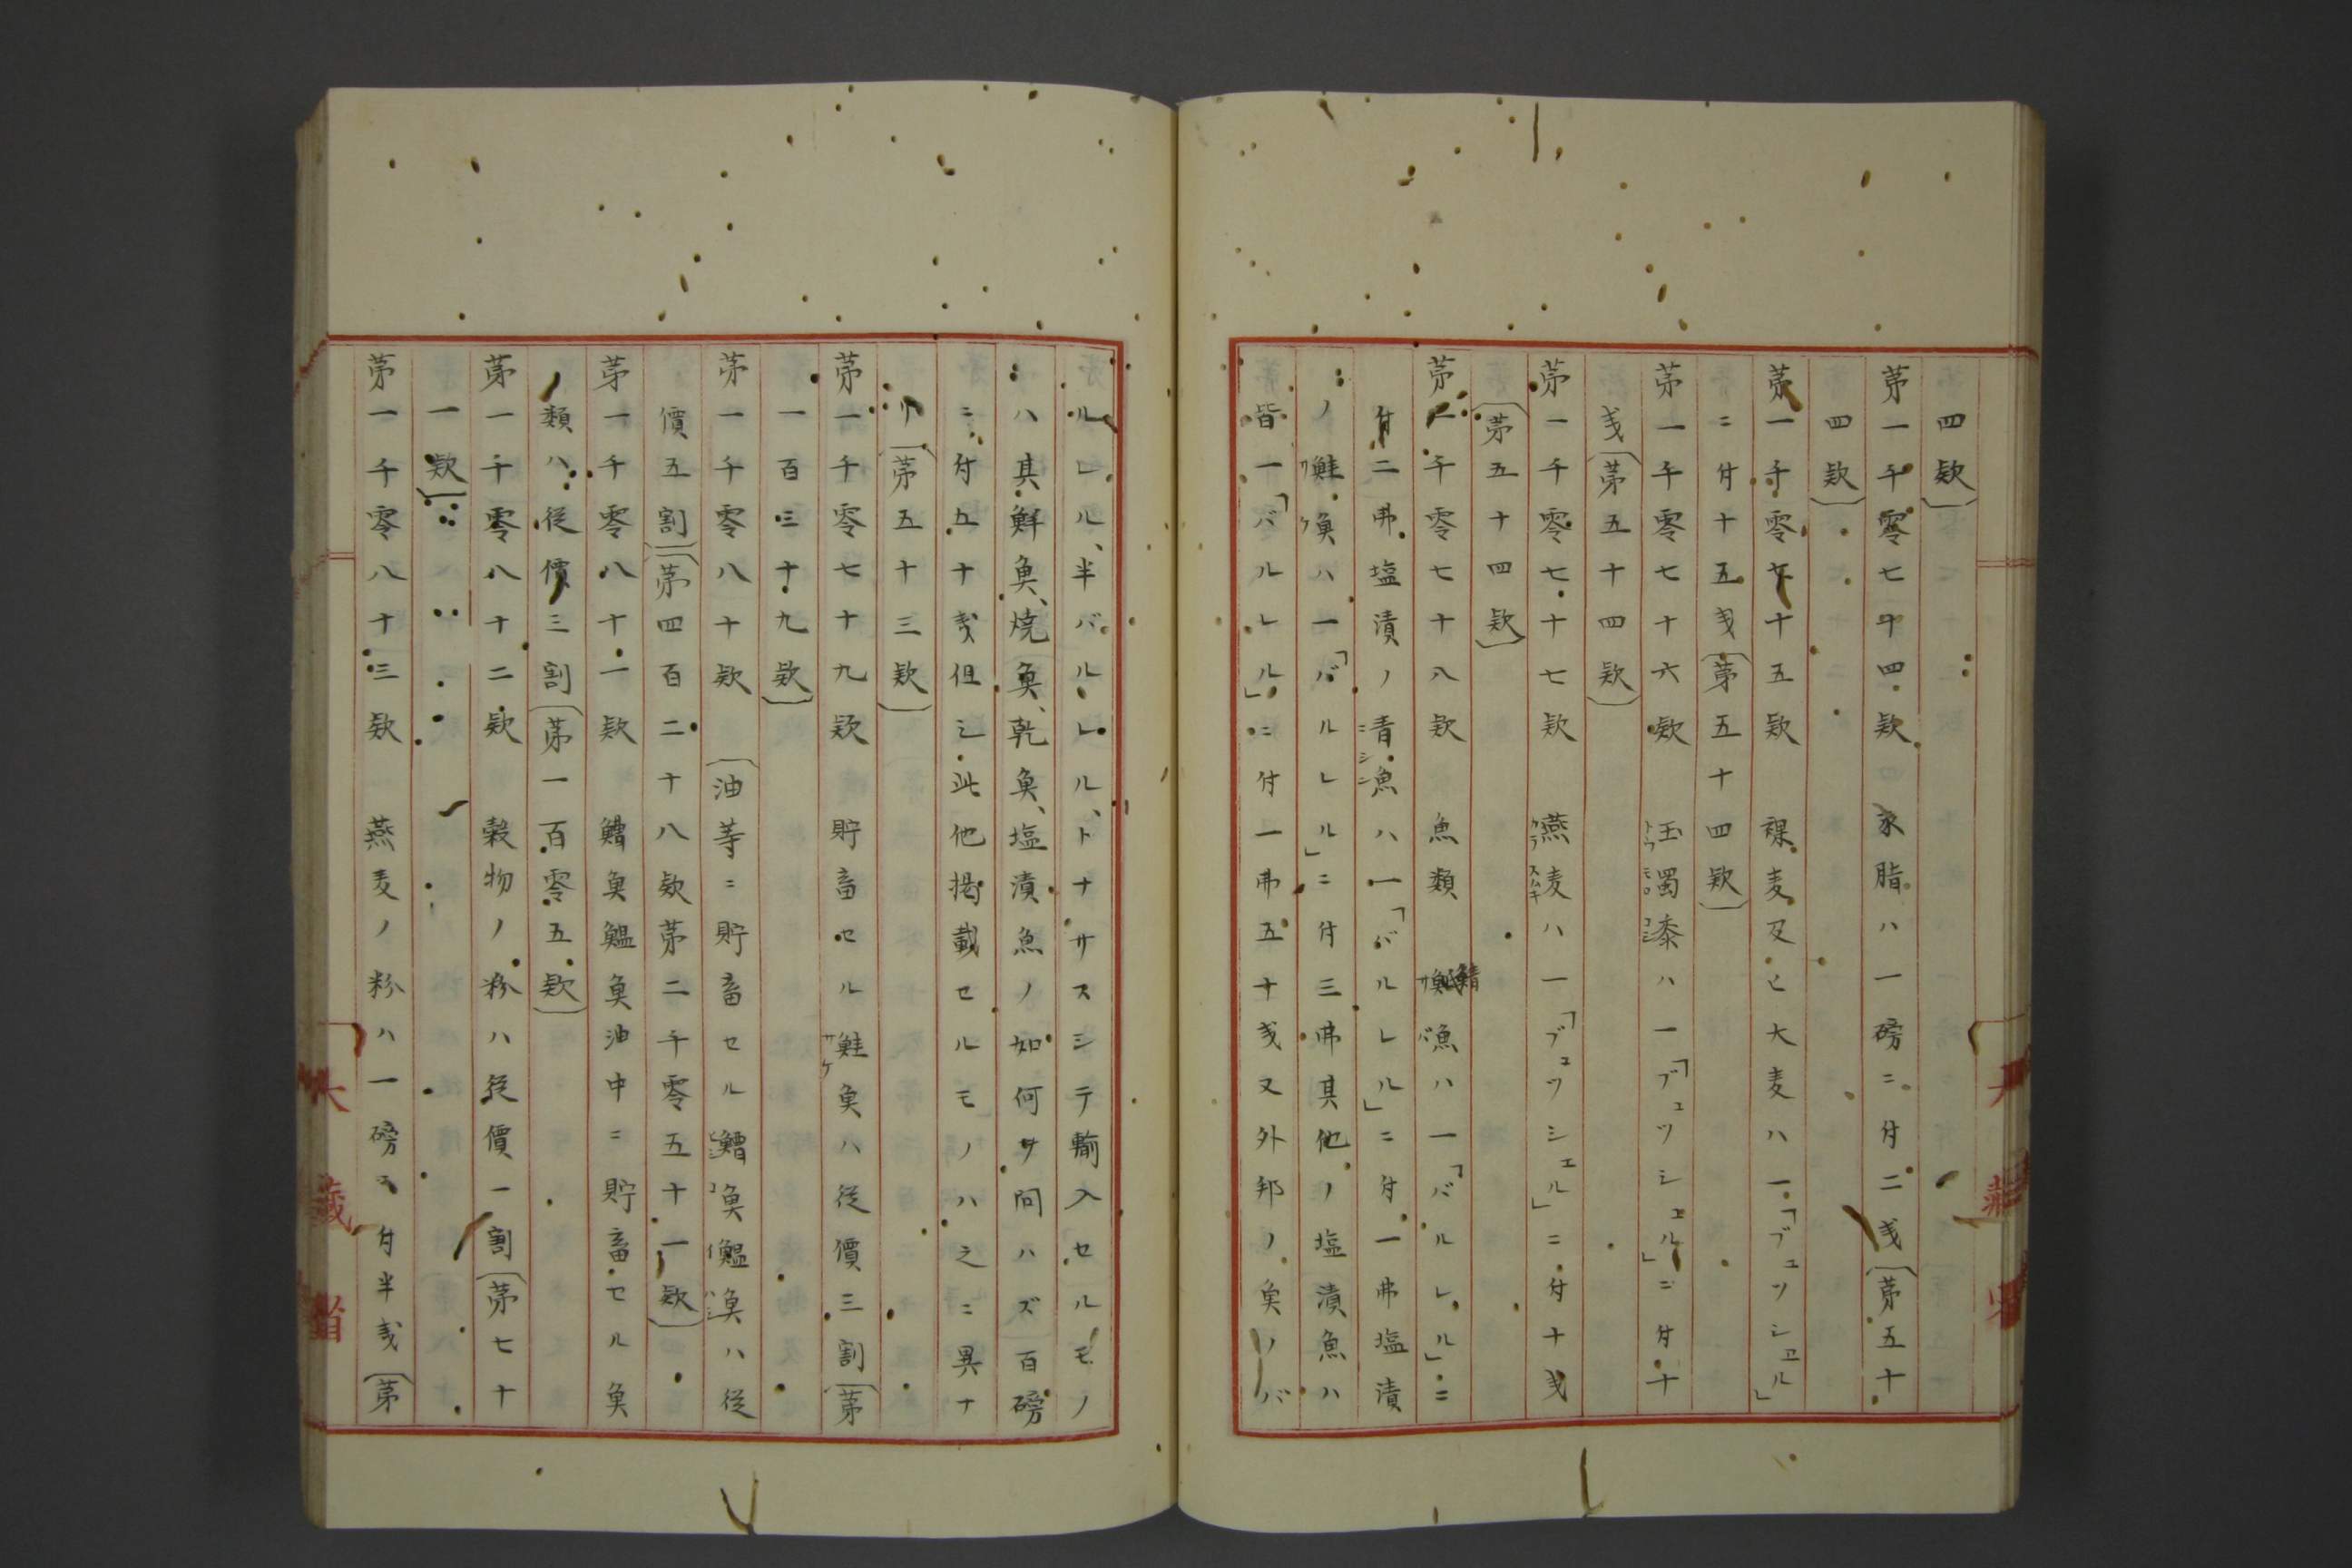 四欵)
第一千零七十四欵 家脂ハ一磅ニ付二戔(第五十
四欵)
第一千零七十五欵 裸麦及ヒ大麦ハ一「ブュツシェル」
ニ付十五戔(第五十四欵)
第一千零七十六欵 玉蜀黍ハ一「ブュツシェル」ニ付十
戔(第五十四欵)
第一千零七十七欵 燕麦ハ一「ブュツシェル」ニ付十戔
(第五十四欵)
第一千零七十八欵 魚類 鯖漁ハ一「バルレル」ニ
付二弗塩漬ノ青魚ハ一「バルレル」ニ付一弗塩漬
ノ鮭魚ハ一「バルレル」ニ付三弗其他ノ塩漬魚ハ
皆一「バルレル」ニ付一弗五十戔又外邦ノ魚ノバ
ルレル、半バルレル、トナサスシテ輸入セルモノ
ハ其鮮魚、焼魚、乾魚、塩漬魚ノ如何ヲ問ハズ百磅
ニ付五十戔但シ此他掲載セルモノハ之ニ異ナ
リ(第五十三欵)
第一千零七十九欵 貯畜セル鮭魚ハ従價三割(第
一百三十九欵)
第一千零八十欵 (油等ニ貯畜セル鰽魚鰮魚ハ従
價五割)(第四百二十八欵第二千零五十一欵)
第一千零八十一欵 鰽魚鰮魚油中ニ貯畜セル魚
類ハ従價三割(第一百零五欵)
第一千零八十二欵 穀物ノ粉ハ従價一割(第七十
一欵)
第一千零八十三欵 燕麦ノ粉ハ一磅ニ付半戔(第
大藏省